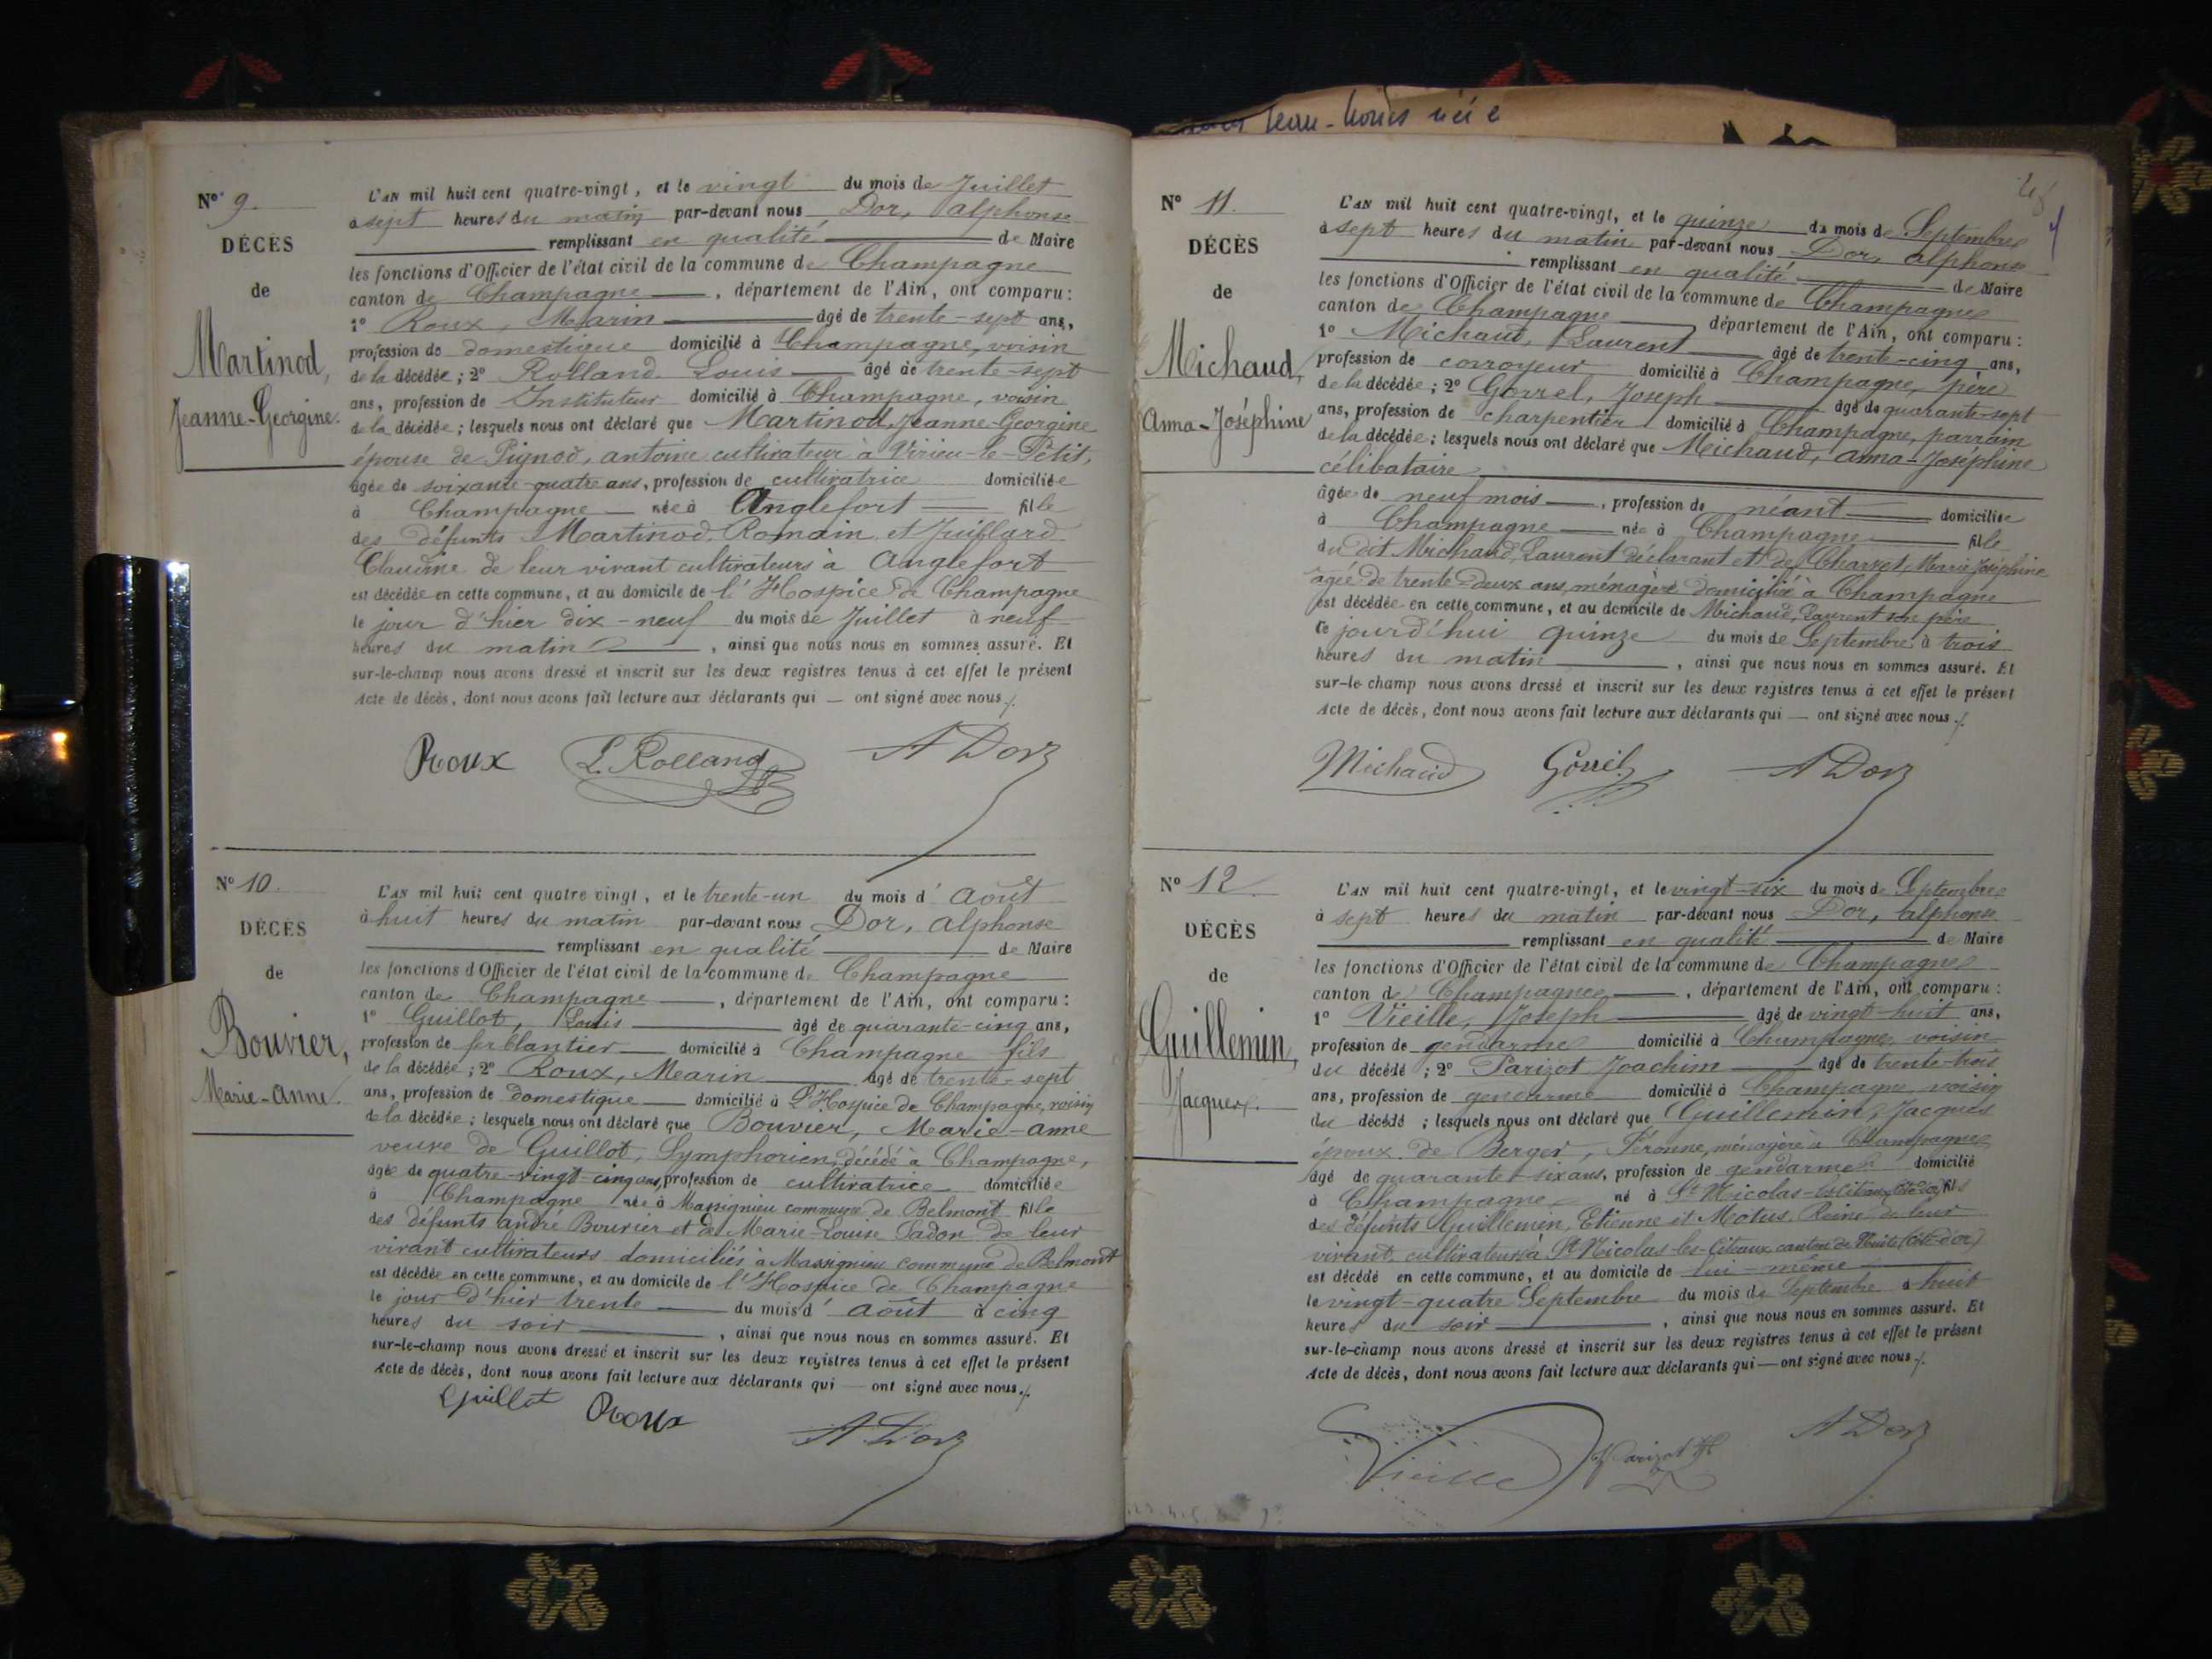 Jean-Louis née
N° 9.
DÉCÈS
de
Martinod,
Jeanne-Georgine.
L'AN mil huit cent quatre-vingt, et le vingt du mois de Juillet
à sept heures du matin par-devant nous Dor, Alphonse
remplissant en qualité de Maire
les fonctions d'Officier de l'état civil de la commune de Champagne
canton de Champagne, département de l'Ain, ont comparu :
1° Roux, Marin âgé de trente-sept ans,
profession de domestique domicilié à Champagne, voisin
de la décédée ; 2° Rolland Louis âgé de trente-sept
ans, profession de Instituteur domicilié à Champagne, voisin
de la décédée ; lesquels nous ont déclaré que Martinod, Jeanne-Georgine
épouse de Pignod, antoine cultivateur à Virieu-le-Petit,
âgée de soixante-quatre ans, profession de cultivatrice domiciliée
à Champagne née à Anglefort fille
des défunts Martinod, Romain et Juillard
Claudine de leur vivant cultivateurs à Anglefort
est décédée en cette commune, et au domicile de l'Hospice de Champagne
le jour d'hier dix-neuf du mois de Juillet à neuf
heures du matin, ainsi que nous nous en sommes assuré. Et
sur-le-champ nous avons dressé et inscrit sur les deux registres tenus à cet effet le présent
Acte de décès, dont nous avons fait lecture aux déclarants qui — ont signé avec nous ./.
Roux L. Rolland A Dor
N° 10.
DÉCÈS
de
Bouvier,
Marie-Anne.
L'AN mil huit cent quatre vingt, et le trente-un du mois d'Août
à huit heures du matin par-devant nous Dor, Alphonse
remplissant en qualité de Maire
les fonctions d'Officier de l'état civil de la commune de Champagne
canton de Champagne, département de l'Ain, ont comparu :
1° Guillot, Louis âgé de quarante-cinq ans,
profession de ferblantier domicilié à Champagne fils
de la décédée ; 2° Roux, Marin âgé de trente-sept
ans, profession de domestique domicilié à L'Hospice de Champagne, voisin
de la décédée ; lesquels nous ont déclaré que Bouvier, Marie-anne
veuve de Guillot, Symphorien, décédé à Champagne,
âgée de quatre-vingt-cinq ans, profession de cultivatrice domiciliée
à Champagne née à Massignieu commune de Belmont fille
des défunts André Bouvier et de Marie-Louise Sadon de leur
vivant cultivateurs domiciliés à Massignieu commune de Belmont
est décédée en cette commune, et au domicile de l'Hospice de Champagne
le jour d'hier trente du mois d'août à cinq
heures du soir, ainsi que nous nous en sommes assuré. Et
sur-le-champ nous avons dressé et inscrit sur les deux registres tenus à cet effet le présent
Acte de décès, dont nous avons fait lecture aux déclarants qui — ont signé avec nous ./.
Guillot Roux A Dor
N° 11.
DÉCÈS
de
Michaud,
Anna-Joséphine
L'AN mil huit cent quatre-vingt, et le quinze du mois de Septembre
à sept heures du matin par-devant nous Dor, Alphonse
remplissant en qualité de Maire
les fonctions d'Officier de l'état civil de la commune de Champagne
canton de Champagne département de l'Ain, ont comparu :
1° Michaud, Laurent âgé de trente-cinq ans,
profession de corroyeur domicilié à Champagne, père
de la décédée ; 2° Gorrel, Joseph âgé de quarante-sept
ans, profession de charpentier domicilié à Champagne, parrain
de la décédée ; lesquels nous ont déclaré que Michaud, Anna-Joséphine
célibataire
âgée de neuf mois, profession de néant domiciliée
à Champagne née à Champagne fille
du dit Michaud, Laurent déclarant et de Charvet, Marie Joséphine
agée de trente-deux ans, ménagère domiciliée à Champagne
est décédée en cette commune, et au domicile de Michaud, Laurent son père
ce jourd'hui quinze du mois de Septembre à trois
heures du matin, ainsi que nous nous en sommes assuré. Et
sur-le champ nous avons dressé et inscrit sur les deux registres tenus à cet effet le présent
Acte de décès, dont nous avons fait lecture aux déclarants qui — ont signé avec nous ./.
Michaud Gorrel A Dor
N° 12
DÉCÈS
de
Guillemin,
Jacques.
L'AN mil huit cent quatre-vingt, et le vingt-six du mois de Septembre
à sept heures du matin par-devant nous Dor, Alphonse
remplissant en qualité de Maire
les fonctions d'Officier de l'état civil de la commune de Champagne
canton de Champagne, département de l'Ain, ont comparu :
1° Vieille, Joseph âgé de vingt-huit ans,
profession de gendarme domicilié à Champagne, voisin
du décédé ; 2° Parizot Joachim âgé de trente-trois
ans, profession de gendarme domicilié à Champagne, voisin
du décédé ; lesquels nous ont déclaré que Guillemin, Jacques
époux de Berger, Péronne, ménagère à Champagne
âgé de quarante-six ans, profession de gendarme domicilié
à Champagne né à St Nicolas-les-Citeaux (Côte d'or) fils
des défunts Guillemin, Etienne et Motus, Reine de leur
vivant, cultivateurs à St Nicolas-les-Citeaux canton de Nuits (Côte-d'or)
est décédé en cette commune, et au domicile de lui-même
le vingt-quatre Septembre du mois de Septembre à huit
heures du soir, ainsi que nous nous en sommes assuré. Et
sur-le-champ nous avons dressé et inscrit sur les deux registres tenus à cet effet le présent
Acte de décès, dont nous avons fait lecture aux déclarants qui — ont signé avec nous ./.
Vieille Parizot A Dor